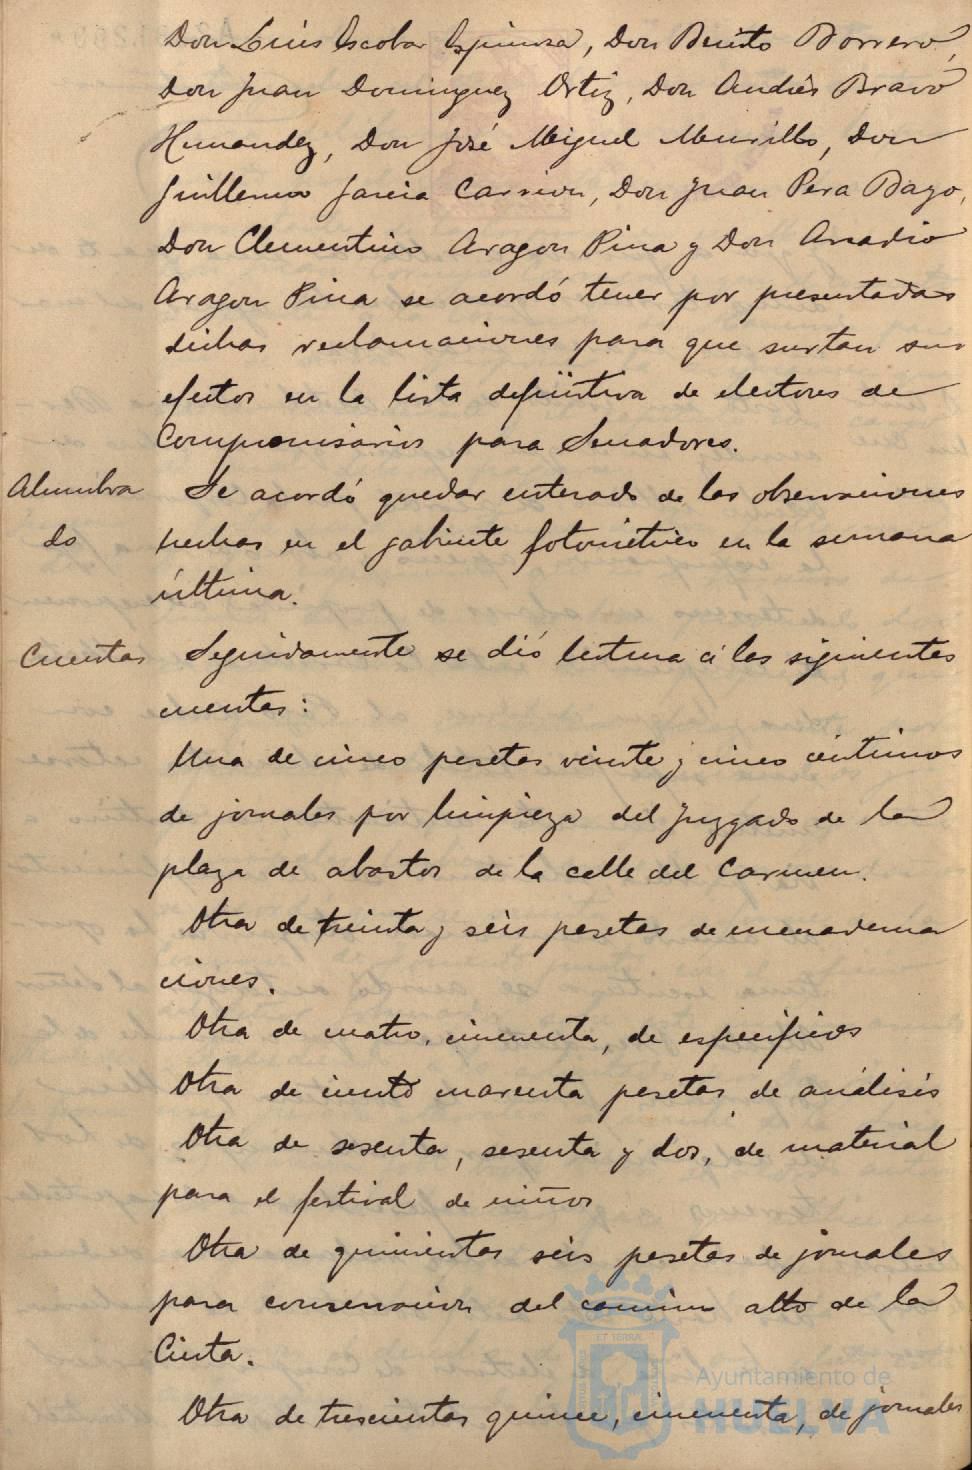 Don Luis Escobar Espinosa, Don Benito Borrero,
Don Juan Dominguez Ortiz, Don Andrés Bravo
Hernandez, Don José Miguel Murillo, Don
Guillermo Garcia Carrion, Don Juan Pera Bago,
Don Clementino Aragon Pina y Don Arcadio
Aragon Pina se acordó tener por presentadas
dichas reclamaciones para que surtan sus
efectos en la lista definitiva de electores de
Compromisarios para Senadores.
Alumbra Se acordó quedar enterado de las observaciones
do hechas en el gabinete fotométrico en la semana
última.
Cuentas Seguidamente se dió lectura á las siguientes
cuentas:
Una de cinco pesetas veinte y cinco céntimos
de jornales por limpieza del juzgado de la
plaza de abastos de la calle del Carmen.
Otra de treinta y seis pesetas de encuaderna
ciones.
Otra de cuatro, cincuenta, de específicos
Otra de ciento cuarenta pesetas de análisis
Otra de sesenta, sesenta y dos, de material
para el festival de niños
Otra de quinientas seis pesetas de jornales
para conservacion del camino alto de la
Cinta.
Otra de trescientas quince, cincuenta, de jornales
Ayuntamiento de
HUELVA